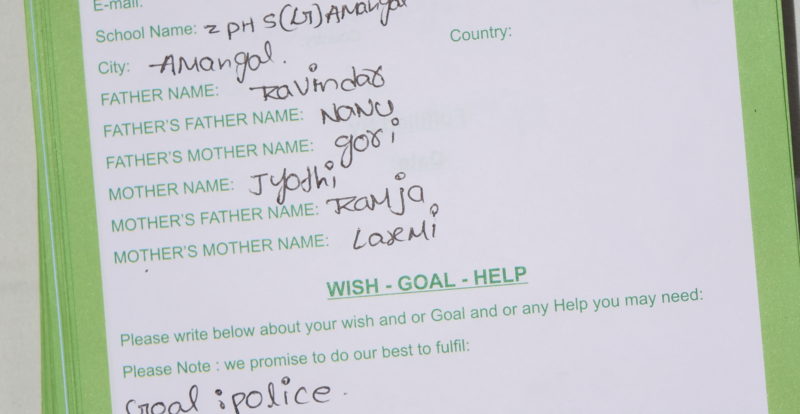 E-mail:
School Name: Z PH S(G) AMangal
Country:
City: AMangal.
FATHER NAME: Ravindar
FATHER'S FATHER NAME: NANU
FATHER'S MOTHER NAME: gori
MOTHER NAME: Jyothi
MOTHER'S FATHER NAME: RAMja
MOTHER'S MOTHER NAME: Laxmi
WISH - GOAL - HELP
Please write below about your wish and or Goal and or any Help you may need:
Please Note : we promise to do our best to fulfil:
Goal : police.